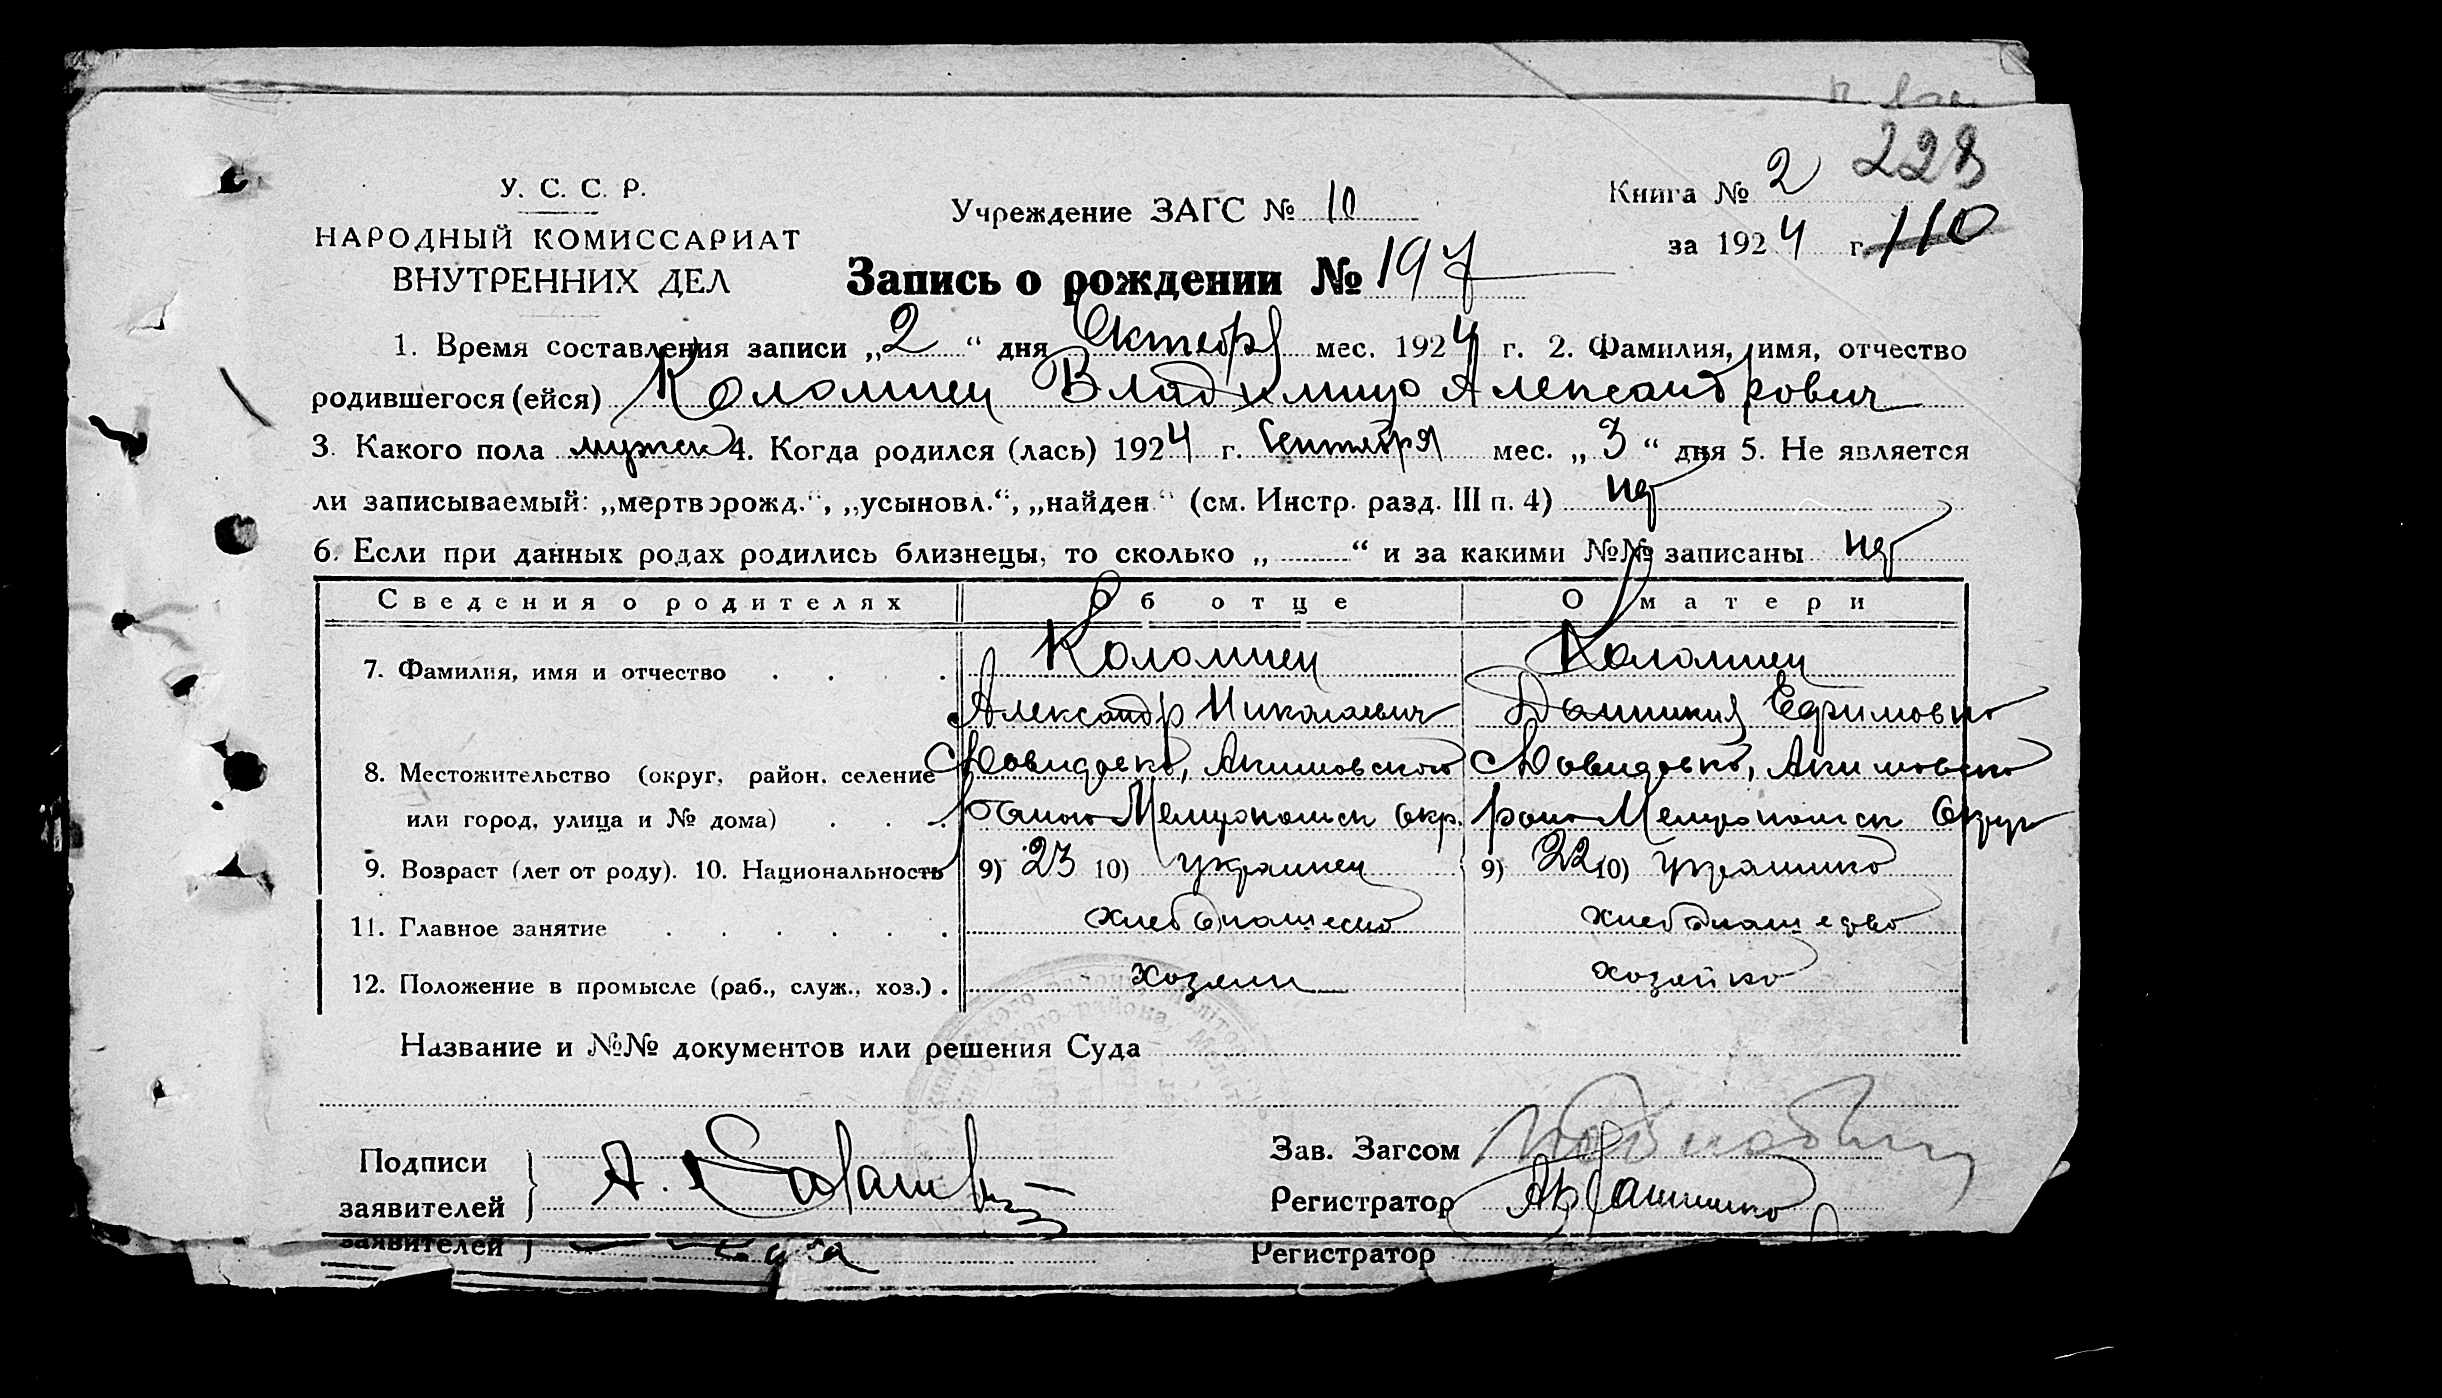 228
У. С. С. Р.
НАРОДНЫЙ КОМИССАРИАТ
ВНУТРЕННИХ ДЕЛ
Учреждение ЗАГС № 10
Книга № 2
за 1924 г. 110
Запись о рождении № 197
1. Время составления записи „2“ дня Октября мес. 1924 г. 2. Фамилия, имя, отчество
родившегося (ейся) Коломиец Владимир Александрович
3. Какого пола мужск 4. Когда родился (лась) 1924 г. Сентября мес. „3“ дня 5. Не является
ли записываемый: „мертворожд.“, „усыновл.“, „найден“ (см. Инстр. разд. III п. 4) нет
6. Если при данных родах родились близнецы, то сколько „ “ и за какими №№ записаны нет
Сведения о родителях Об отце О матери
7. Фамилия, имя и отчество Коломиец Коломиец
Александр Николаевич Ефимовна
8. Местожительство (округ, район, селение Давидовка, Акимовского Давидовка, Акимовского
или город, улица и № дома) района Мелитопольск окр. района Мелитопольск Округа
9. Возраст (лет от роду). 10. Национальность 9) 23 10) украинец 9) 22 10) украинка
11. Главное занятие хлебопашество хлебопашество
12. Положение в промысле (раб., служ., хоз.) хозяин хозяйка
Название и №№ документов или решения Суда
Подписи
заявителей
А.
Зав. Загсом
Регистратор
заявителей
Регистратор